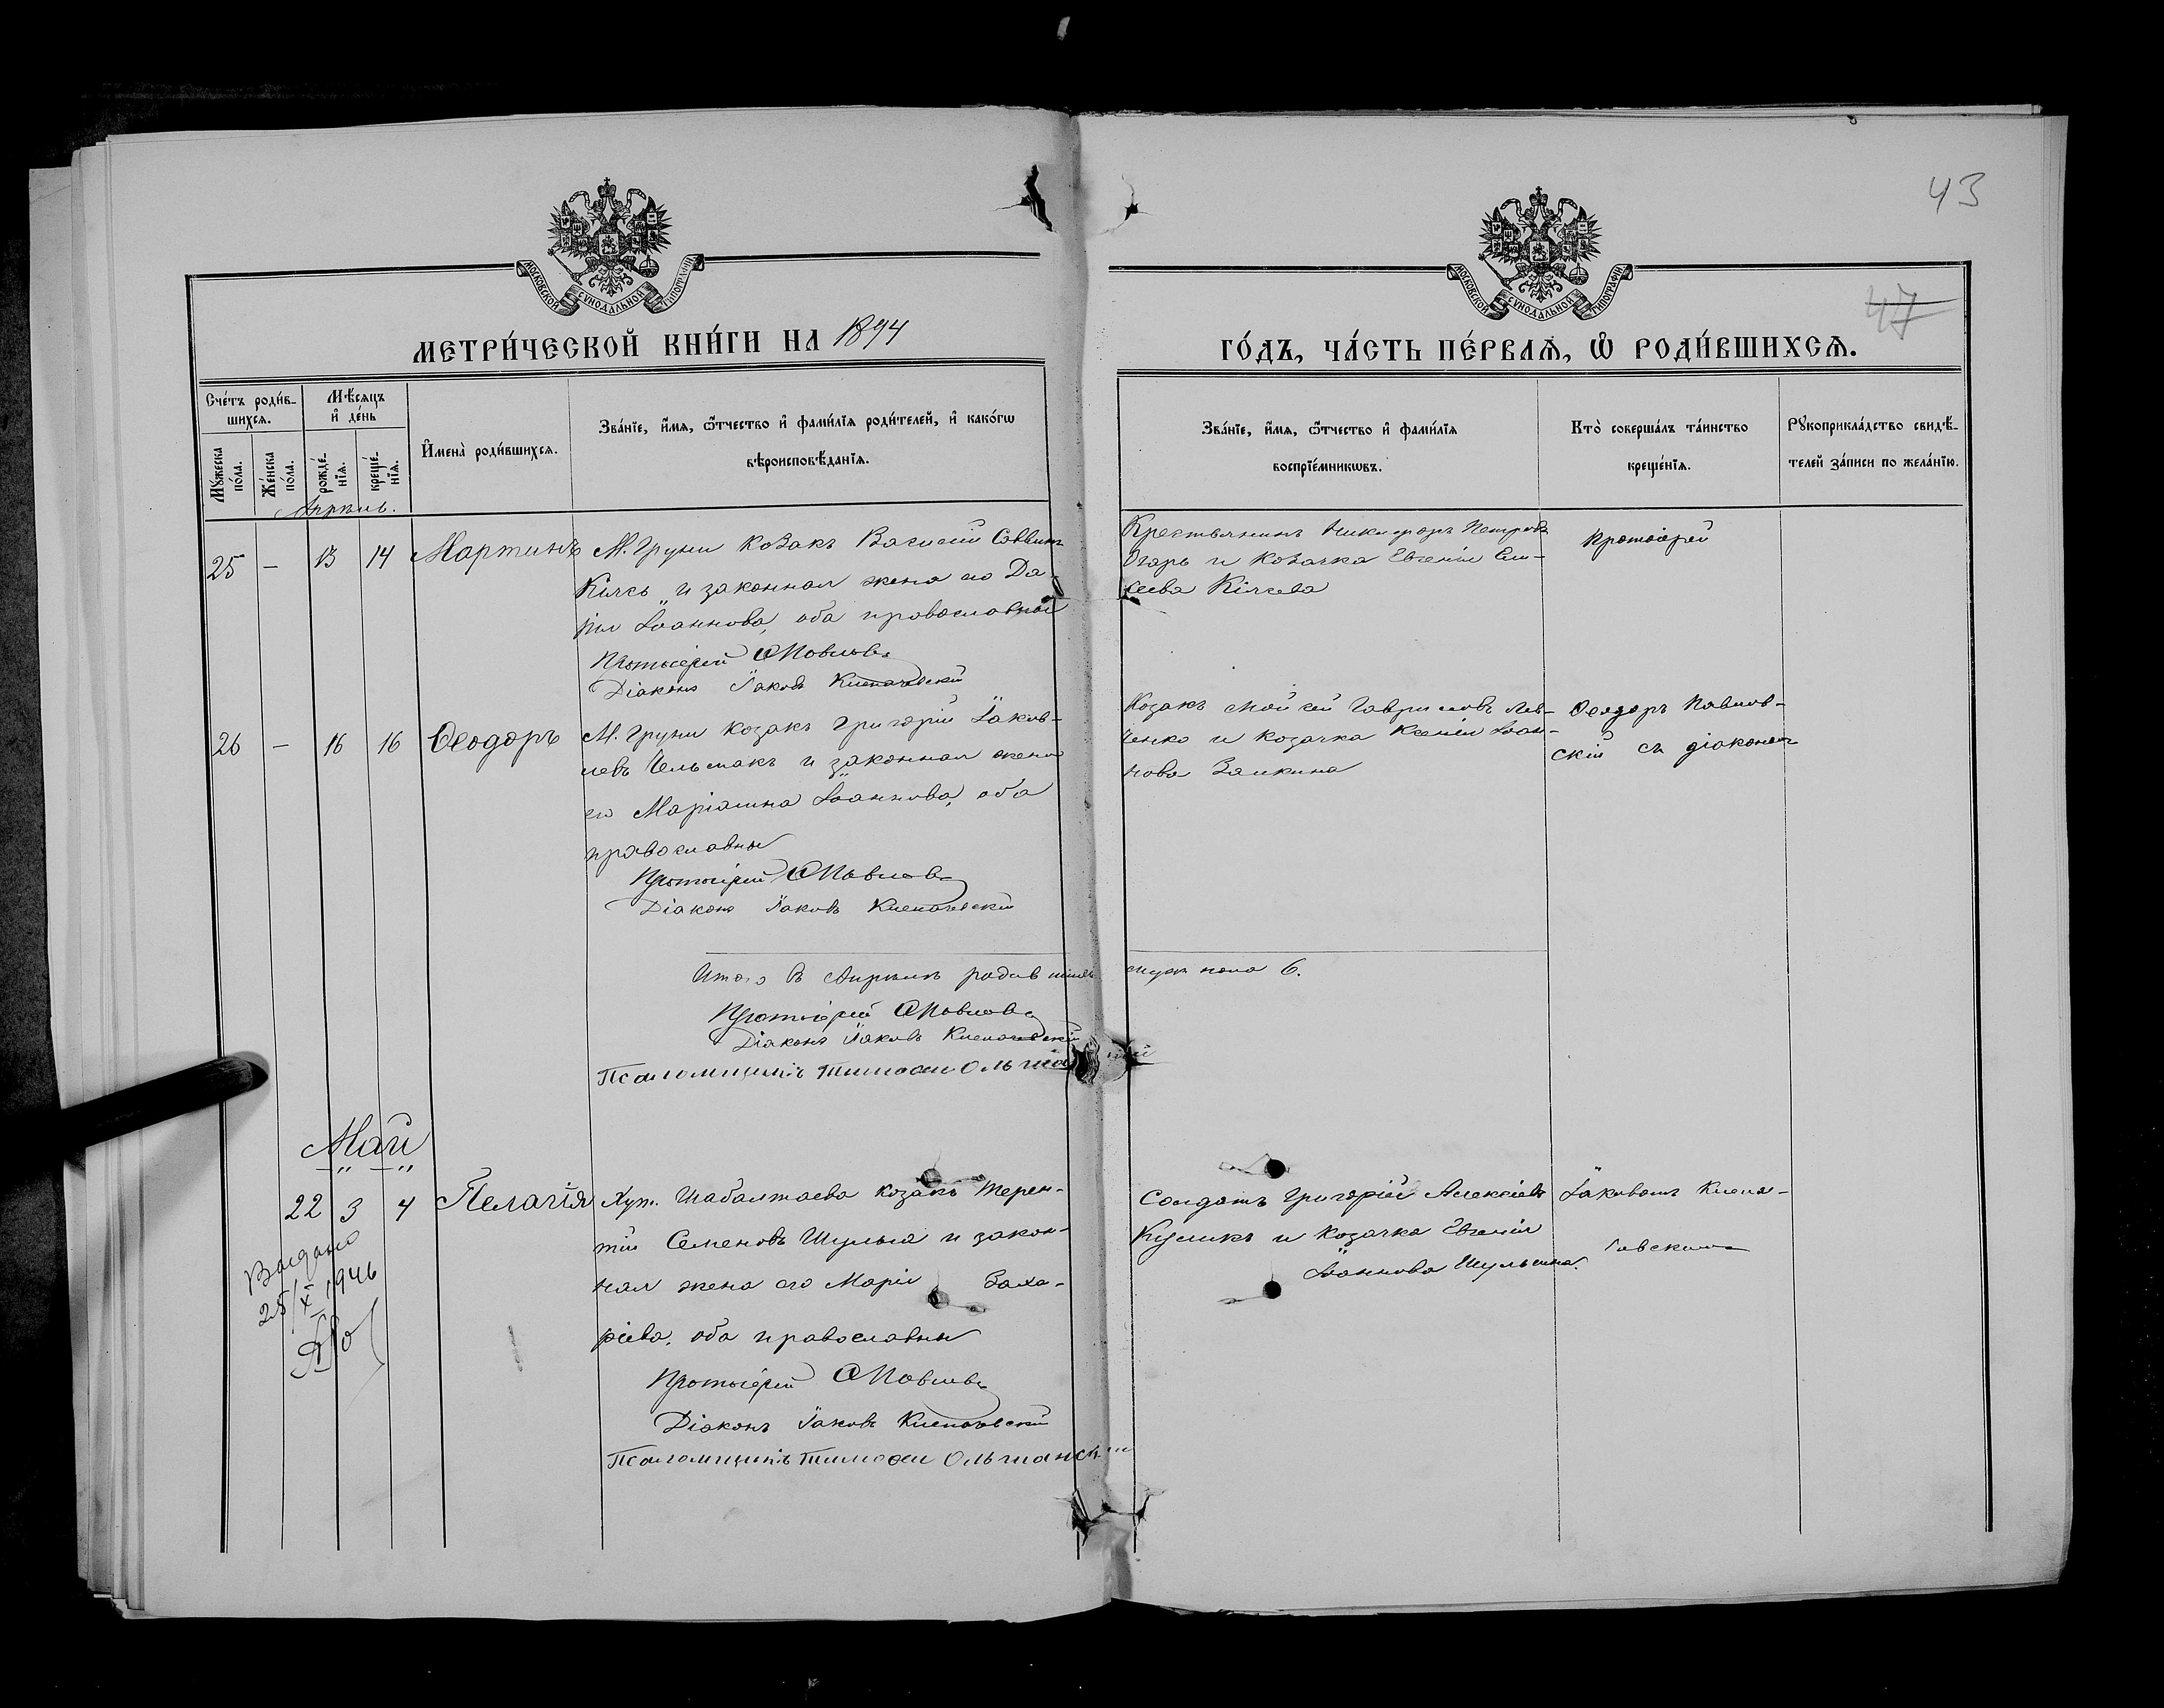 43
47
МОСКОВСКОЙ СѴНОДАЛЬНОЙ ТИПОГРАФІИ
МОСКОВСКОЙ СѴНОДАЛЬНОЙ ТИПОГРАФІИ
МЕТРИ́ЧЕСКОЙ КНИ́ГИ НА 1894
ГО́ДЪ, ЧА́СТЬ ПЕ́РВАѦ, Ѡ҆ РОДИ́ВШИХСѦ.
Сче́тъ роди́в-
шихсѧ.
Мꙋ́жеска
по́ла.
Же́нска
по́ла.
Мѣ́сѧцъ
и҆ де́нь
рожде́-
нїѧ.
креще́-
нїѧ.
И҆мена̀ роди́вшихсѧ.
Зва́нїе, и҆́мѧ, ѻ҆́тчество и҆ фами́лїѧ роди́телей, и҆ како́гѡ
вѣроисповѣ́данїѧ.
Зва́нїе, и҆́мѧ, ѻ҆́тчество и҆ фами́лїѧ
воспрїе́мникѡвъ.
Кто̀ соверша́лъ та́инство
креще́нїѧ.
Рꙋкоприкла́дство свидѣ́-
телей за́писи по жела́нїю.
Апрѣль.
25 — 13 14 Мартинъ
М. Груни козакъ Василій Саввинъ
и законная жена его Да-
рія Іоаннова, оба православные
Протоіерей Ѳ Павловс
Діаконъ Іаковъ Клепачевскій
Крестьянинъ Никифоръ Петровъ
Огарь и козачка Евгенія Ели-
сеева
Протоіерей
26 — 16 16 Ѳеодоръ
М. Груни козакъ Григорій Іаков-
левъ и законная жена
его Маріамна Іоаннова, оба
православны
Протоіерей Ѳ Павловс
Діаконъ Іаковъ Клепачевскій
Козакъ Мойсей Гавриловъ Лев-
ченко и козачка Ксенія Іоан-
нова Заикина
Ѳеодоръ Павлов-
скій съ діакономъ
Итого въ Апрѣлѣ родившихъ муж пола 6.
Протоіерей Ѳ Павловс
Діаконъ Іаковъ Клепачевскій
Псаломщикъ Тимоѳей Ольшанскій
Май
22 3 4 Пелагія
Хут. Шабалтаева козакъ Терен-
тій Семеновъ Шульга и закон-
ная жена его Марія Заха-
ріева, оба православны
Протоіерей Ѳ Павловс
Діаконъ Іаковъ Клепачевскій
Псаломщикъ Тимоѳей Ольшанскій
Солдатъ Григорій Алексѣевъ
Куликъ и козачка Евгенія
Іоаннова Шульгина.
Іаковомъ Клепа-
чевскимъ
Выдано
25/X 1946